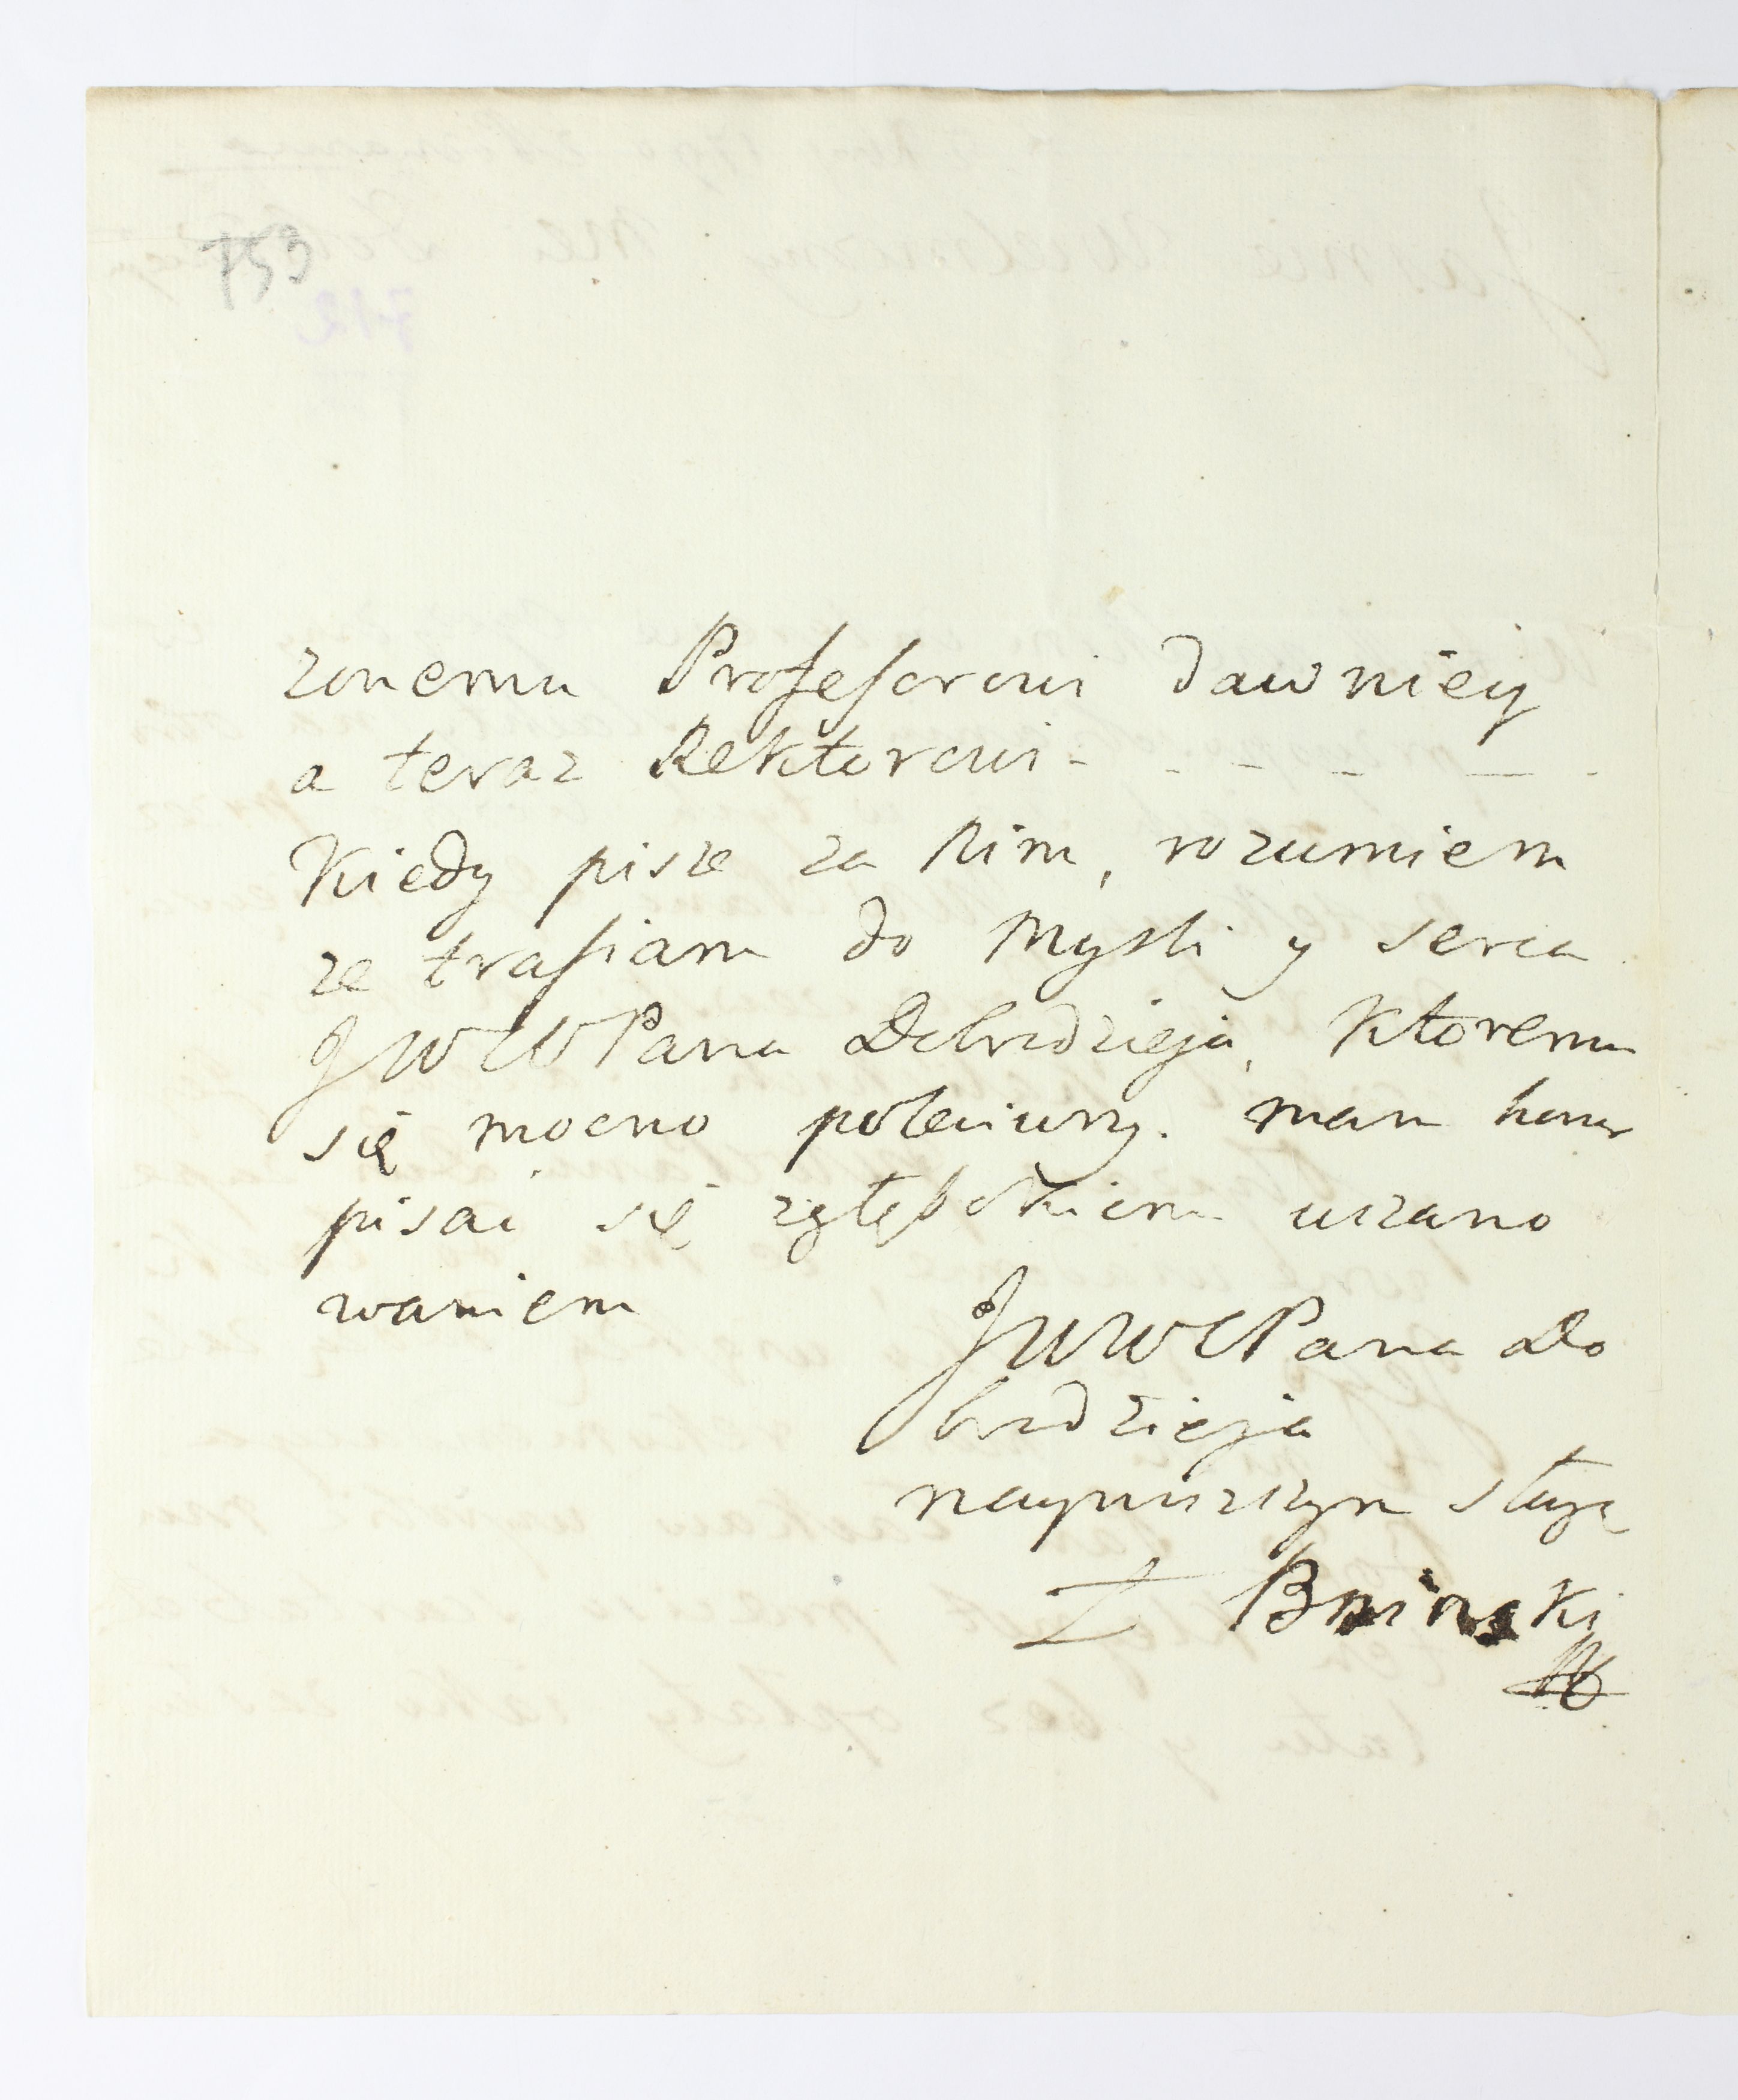 753
zonemu Professorowi dawniey
a teraz Rektorowi - - - - - -
Kiedy pisze za Nim, rozumiem
ze trafiam do Mysli y serca
JWWPana Dobrodzieja, Ktoremu
się mocno poleciwszy. mam honor
pisac się zgłębokiem uszano
waniem
JWWPana Do
brodzieja
nayniszszym sługą
Ł Bninski